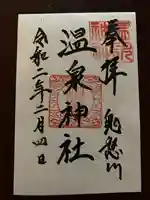 奉拝 鬼怒川
温泉神社
令和二年二月四日